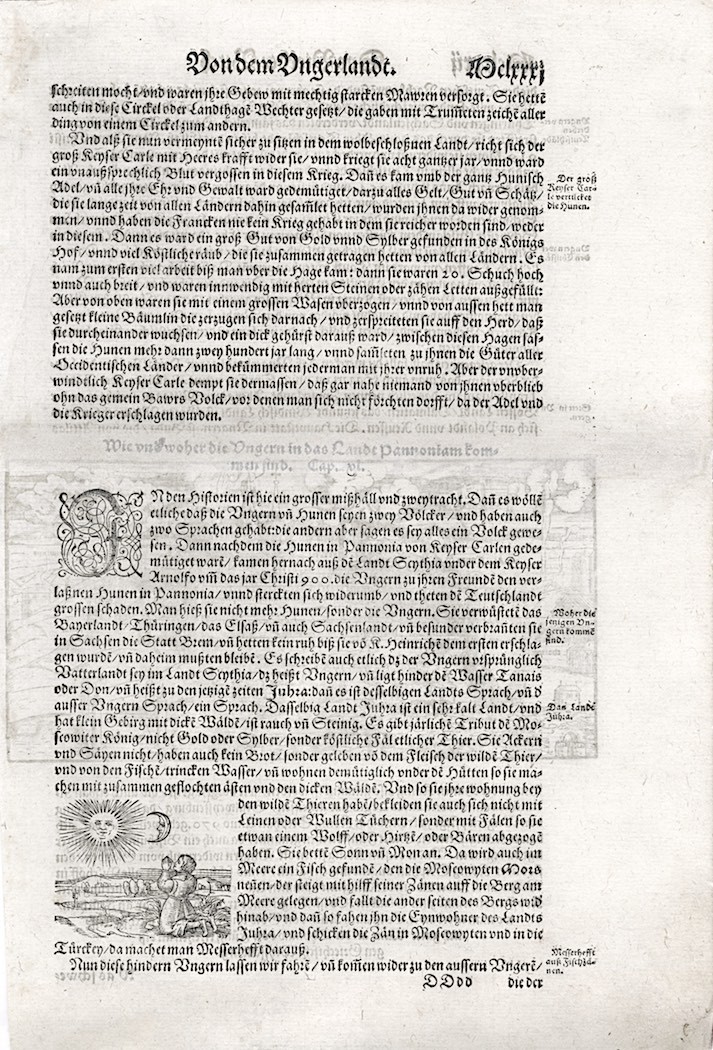 Von dem Vngerlandt. Mclxxxj
schreiten mocht/vnd waren jhre Gebew mit mechtig starcken Mawren versorgt. Sie hettē
auch in diese Circkel oder Landthagē Wechter gesetzt/die gaben mit Trum̄eten zeichē aller
ding von einem Circkel zum andern.
Vnd alß sie nun vermeyntē sicher zu sitzen in dem wolbeschloßnen Landt/richt sich der
groß Keyser Carle mit Heeres krafft wider sie/vnnd kriegt sie acht gantzer jar/vnnd ward
ein vnaußsprechlich Blut vergossen in diesem Krieg. Dañ es kam vmb der gantz Hunisch
Adel/vñ alle jhre Ehr vnd Gewalt ward gedemütiget/darzu alles Gelt/Gut vñ Schätz/
die sie lange zeit von allen Ländern dahin gesamlet hetten/wurden jhnen da wider genom-
men/vnnd haben die Francken nie kein Krieg gehabt in dem sie reicher worden sind/weder
in diesem. Dann es ward ein groß Gut von Gold vnnd Sylber gefunden in des Königs
Hof/vnnd viel Köstliche räub/die sie zusammen getragen hetten von allen Ländern. Es
nam zum ersten viel arbeit biß man vber die Hage kam: dann sie waren 20. Schuch hoch
vnnd auch breit/vnd waren innwendig mit herten Steinen oder zähen Letten außgefüllt:
Aber von oben waren sie mit einem grossen Wasen vberzogen/vnnd von aussen hett man
gesetzt kleine Bäumlin die zerzugen sich darnach/vnd zerspreiteten sie auff den Herd/daß
sie durcheinander wuchsen/vnd ein dick gehürst darauß ward/zwischen diesen Hagen sas-
sen die Hunen mehr dann zwey hundert jar lang/vnnd sam̄leten zu jhnen die Güter aller
Occidentischen Länder/vnnd bekümmerten jederman mit jhrer vnruh. Aber der vnvber-
windtlich Keyser Carle dempt sie dermassen/daß gar nahe niemand von jhnen vberblieb
ohn das gemein Bawrs Volck/vor denen man sich nicht förchten dorfft/da der Adel vnd
die Krieger erschlagen wurden.
Der groß
Keyser Car-
le vertilcket
die Hunen.
Wie vnd woher die Vngern in das Landt Pannoniam kom-
men sind. Cap. vj.
IN den Historien ist hie ein grosser mißhäll vnd zweytracht. Dañ es wöllē
etliche daß die Vngern vñ Hunen seyen zwey Völcker/vnd haben auch
zwo Sprachen gehabt: die andern aber sagen es sey alles ein Volck gewe-
sen. Dann nachdem die Hunen in Pannonia von Keyser Carlen gede-
mütiget warē/kamen hernach auß dē Landt Scythia vnder dem Keyser
Arnolfo vm̄ das jar Christi 900. die Vngern zu jhren Freundē den ver-
laßnen Hunen in Pannonia/vnnd sterckten sich widerumb/vnd theten dē Teutschlandt
grossen schaden. Man hieß sie nicht mehr Hunen/sonder die Vngern. Sie verwüstetē das
Bayerlandt/Thüringen/das Elsaß/vñ auch Sachsenlandt/vñ besunder verbrañten sie
in Sachsen die Statt Brem/vñ hetten kein ruh biß sie vō K. Heinrichē dem ersten erschla-
gen wurdē/vñ daheim mußten bleibē. Es schreibē auch etlich dz der Vngern vrsprünglich
Vatterlandt sey im Landt Scythia/dz heißt Vngern/vñ ligt hinder dē Wasser Tanais
oder Don/vñ heißt zu den jetzigē zeiten Juhra: dañ es ist desselbigen Landts Sprach/vñ d̄
ausser Vngern Sprach/ein Sprach. Dasselbig Landt Juhra ist ein sehr kalt Landt/vnd
hat klein Gebirg mit dickē Wäldē/ist rauch vñ Steinig. Es gibt järlichē Tribut dē Mo-
scowiter König/nicht Gold oder Sylber/sonder köstliche Fäl etlicher Thier. Sie Ackern
vnd Säyen nicht/haben auch kein Brot/sonder geleben vō dem Fleisch der wildē Thier/
vnd von den Fischē/trincken Wasser/vñ wohnen demütiglich vnder dē Hütten so sie ma-
chen mit zusammen geflochten ästen vnd den dicken Wäldē. Vnd so sie jhre wohnung bey
den wildē Thieren habē/bekleiden sie auch sich nicht mit
Leinen oder Wullen Tüchern/sonder mit Fälen so sie
etwan einem Wolff/oder Hirtzē/oder Bären abgezogē
haben. Sie bettē Sonn vñ Mon an. Da wird auch im
Meere ein Fisch gefundē/den die Moscowyten Mors
neñen/der steigt mit hilff seiner Zänen auff die Berg am
Meere gelegen/vnd fallt die ander seiten des Bergs wid
hinab/vnd dañ so fahen jhn die Eynwohner des Landts
Juhra/vnd schicken die Zän in Moscowyten vnd in die
Türckey/da machet man Messerhefft darauß.
Nun diese hindern Vngern lassen wir fahrē/vñ kom̄en wider zu den aussern Vngerē/
Woher die
jenigen Vn-
gern kommē
sind.
Das Landt
Juhra.
Messerhefft
auß Fischzä-
nen.
DDdd die der